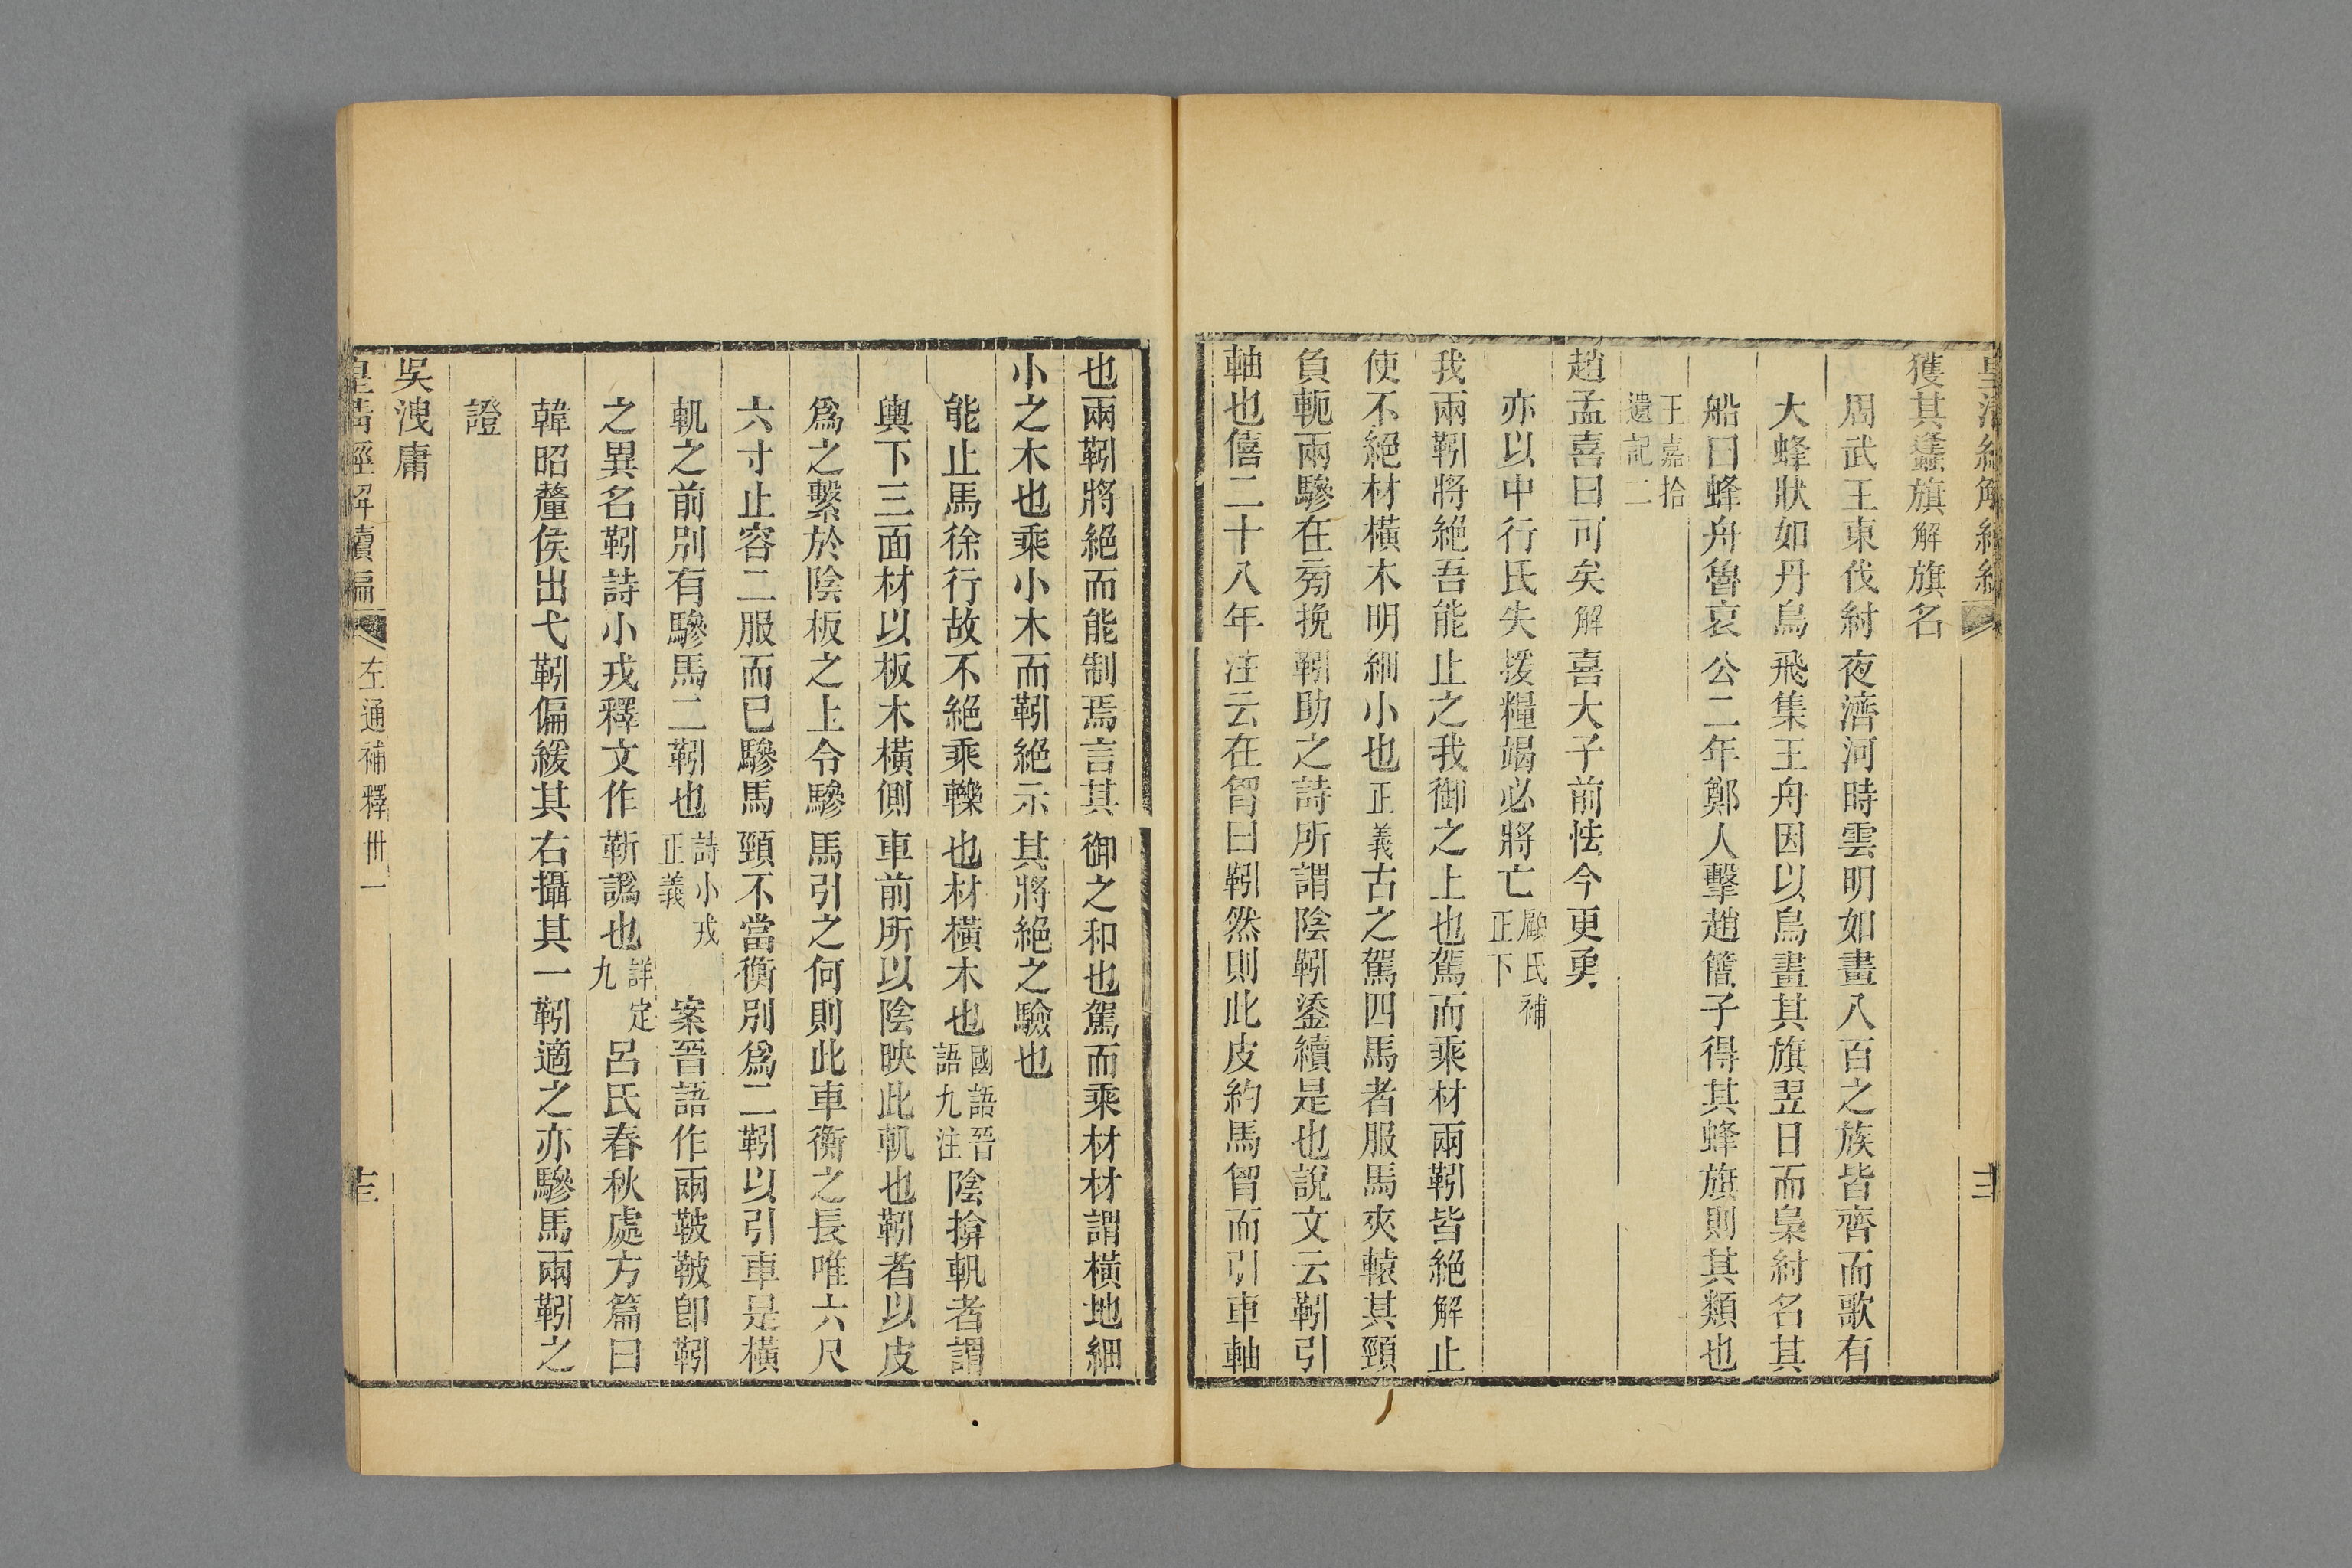 獲其蠭旗解旗名
周武王東伐紂夜濟河時雲明如晝八百之族皆齊而歌有
大蜂狀如丹鳥飛集王舟因以鳥畫其旗翌日而梟紂名其
船曰蜂舟魯哀公二年鄭人擊趙簡子得其蜂旗則其類也
王嘉拾
遺記二
趙孟喜曰可矣解喜大子前怯今更勇
亦以中行氏失援糧竭必將亡顧氏補正下
我兩靷將絕吾能止之我御之上也駕而乘材兩靷皆絕解止
使不絕材橫木明細小也正義古之駕四馬者服馬夾轅其頸
負軛兩驂在旁挽靷助之詩所謂陰靷鋈續是也說文云靷引
軸也僖二十八年注云在胷曰靷然則此皮約馬胷而引車軸
也兩靷將絕而能制焉言其御之和也駕而乘材材謂橫地細
小之木也乘小木而靷絕示其將絕之驗也
能止馬徐行故不絕乘轢也材橫木也國語晉語九注陰揜軓者謂
輿下三面材以板木橫側車前所以陰映此軓也靷者以皮
爲之繫於陰板之上令驂馬引之何則此車衡之長唯六尺
六寸止容二服而已驂馬頸不當衡別爲二靷以引車是橫
軓之前別有驂馬二靷也詩小戎正義案晉語作兩鞁鞁卽靷
之異名靷詩小戎釋文作靳譌也詳定九呂氏春秋處方篇曰
韓昭釐侯出弋靷偏緩其右攝其一靷適之亦驂馬兩靷之
證
吳洩庸
皇清經解續編
左通補釋卅一